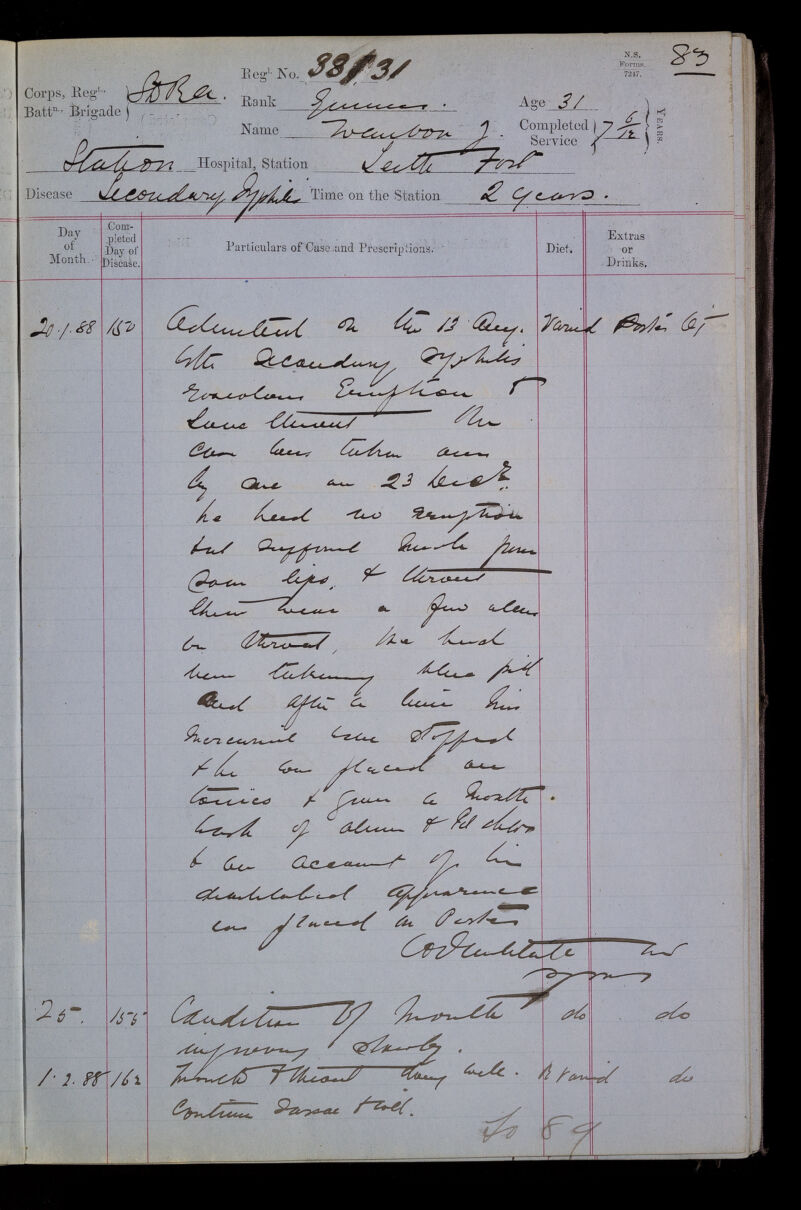 N.S. Forms. 7247.
83
Regtl. No. 33131
Corps, Regt. Battn. Brigade
Rank Gunner.
Age 31
Name J.
Completed Service 7 6/12 YEARS.
Station Hospital, Station Leith Fort
Disease Secondary Syphilis Time on the Station 2 years.
Day of Month.
Completed Day of Disease.
Particulars of Case and Prescriptions.
Diet.
Extras or Drinks.
20.1.88 150 Admitted on the 13 Aug. Varied Porter
with Secondary Syphilis
Roseolous Eruption &
Sore throat The
case was taken over
by me on 23 Decr.
he had no eruption
but suffered much from
Sore lips, & throat
there were a few ulcers
on throat, he had
been taking blue pill
and after a time his
Mercurial was stopped
& he was placed on
tonics & given a Mouth
wash of alum &
& on account of his
debilitated appearance
was placed on Porter
25. 155 Condition of Mouth do do
improving slowly.
1.2.88 162 Mouth & throat doing well. Varied do
Continue
To 89